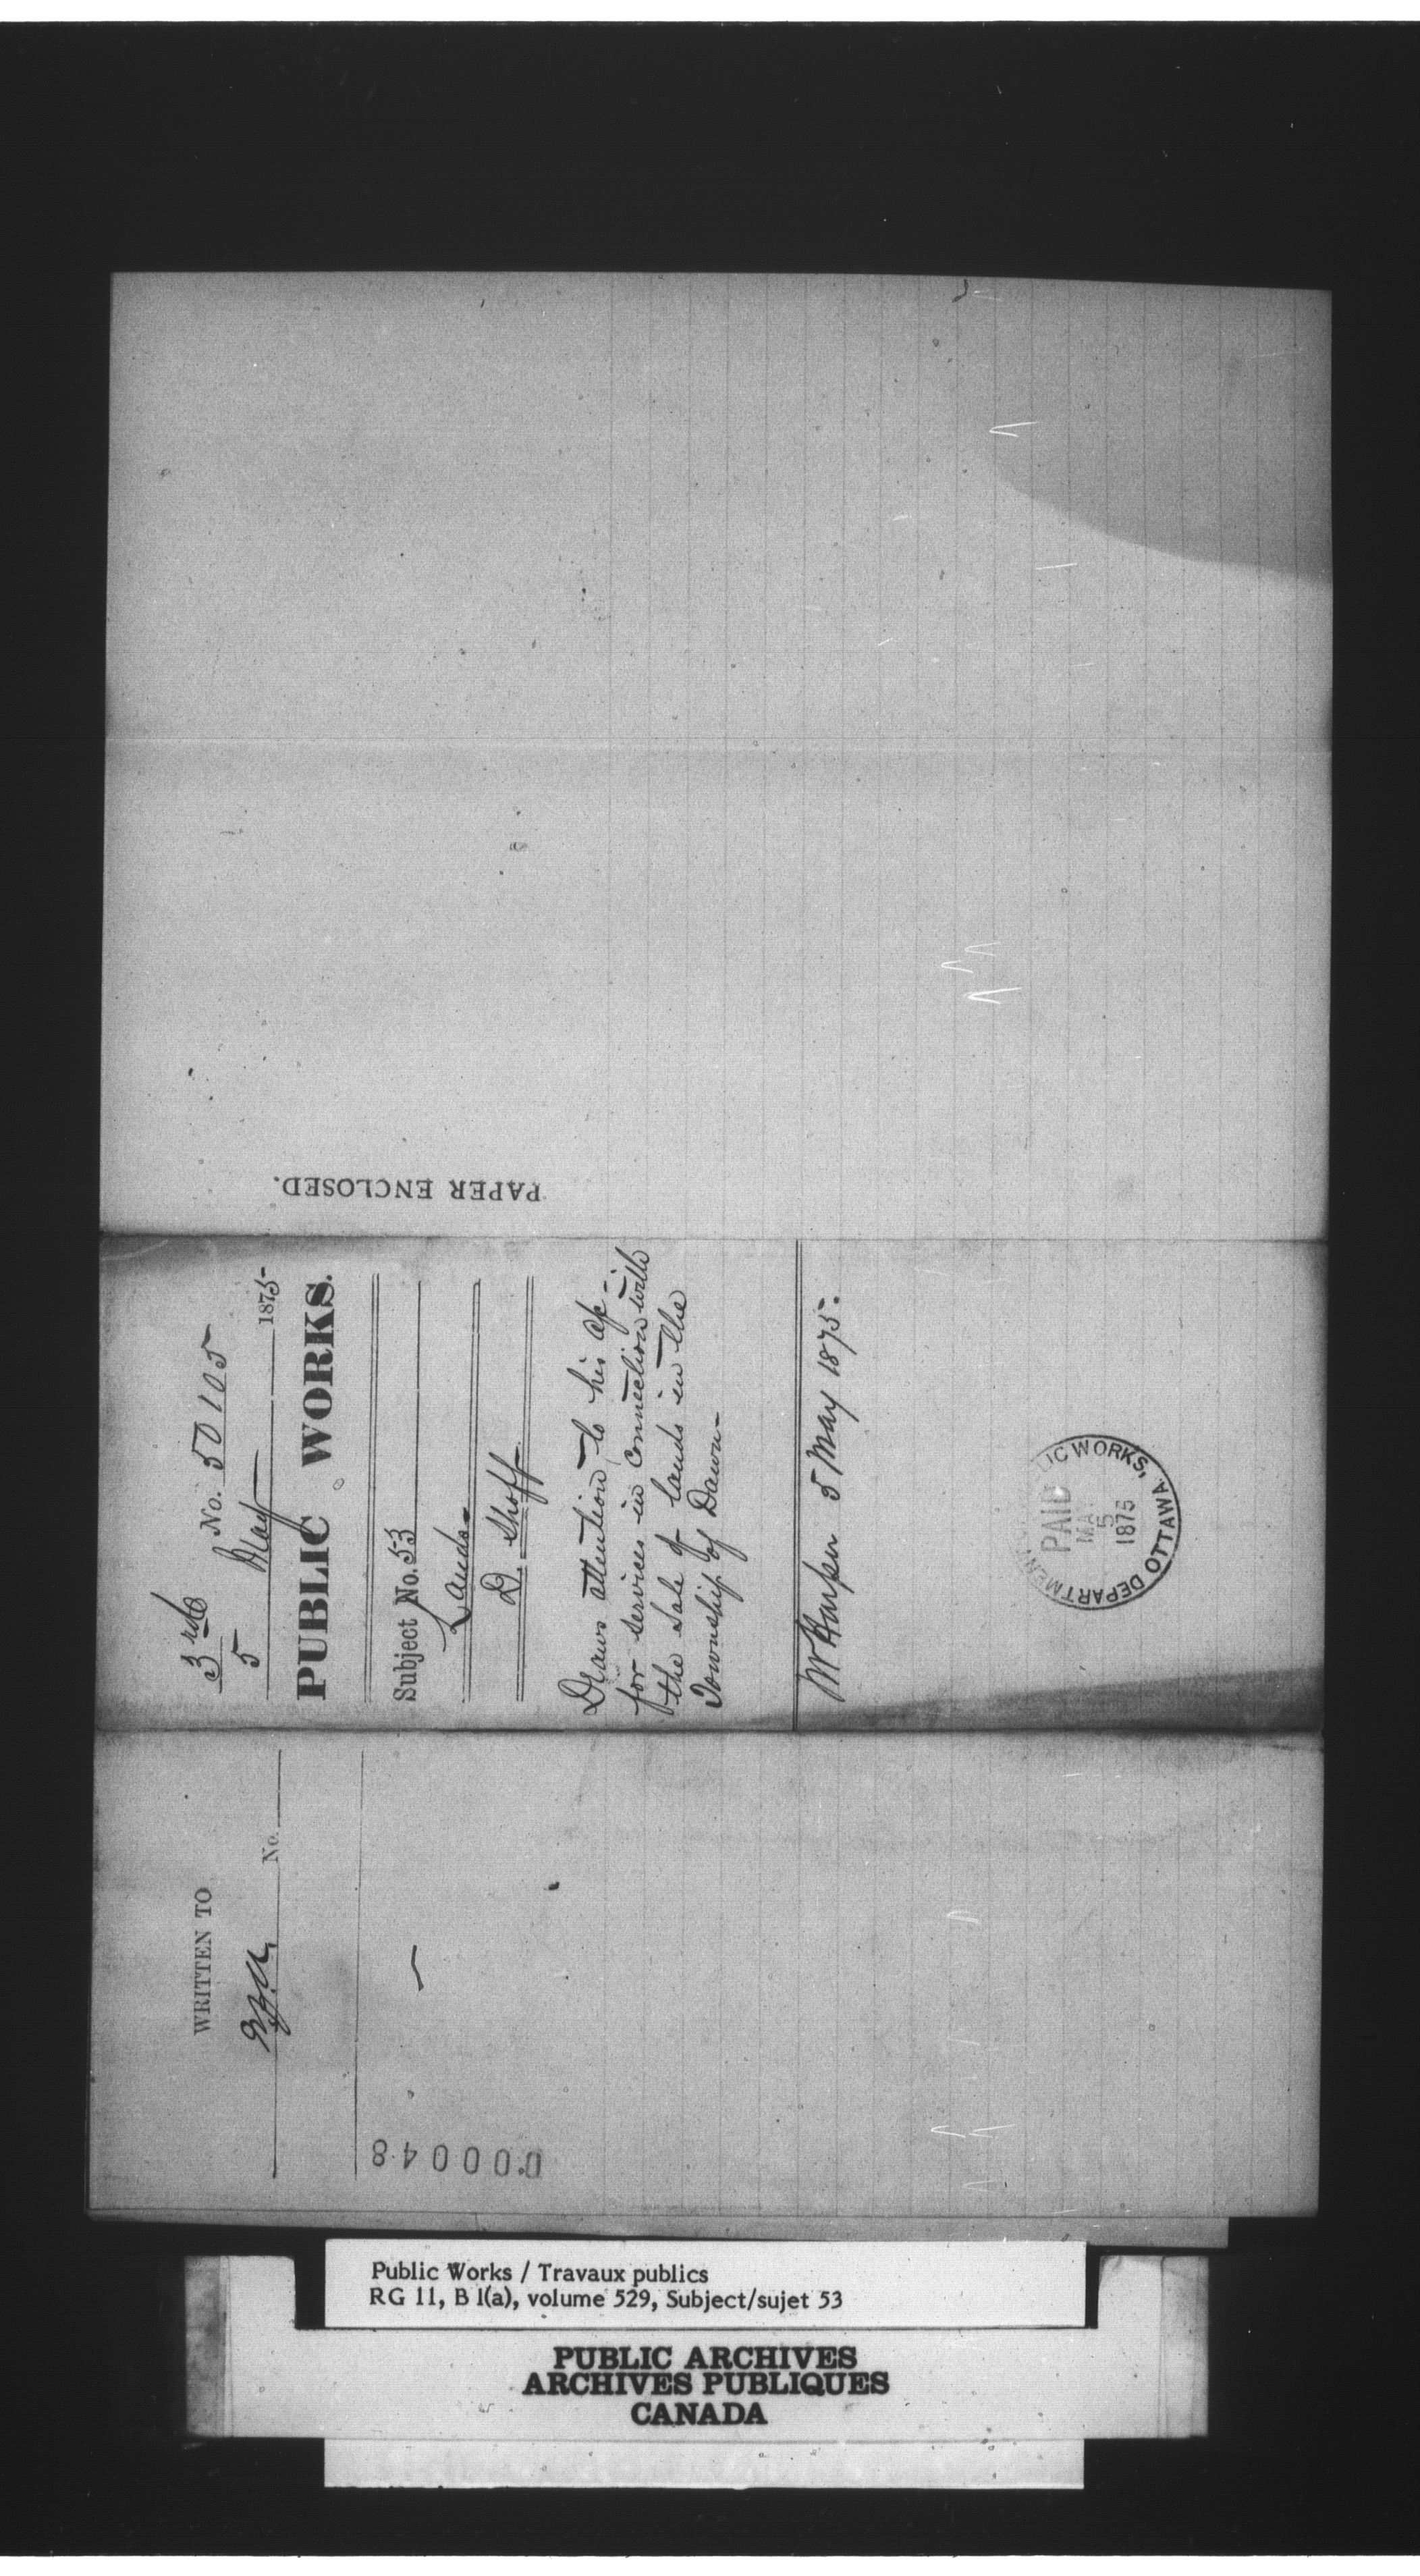 PAPER ENCLOSED.
3rd No. 50105
5 May 1875
PUBLIC WORKS.
Subject No. 53
Lands
D. Shoff
Draws attention to his a/c
for services in connection with
the sale of lands in the
Township of Dawn
Mr Harper 5 May 1875.
DEPARTMENT PUBLIC WORKS, OTTAWA
PAID
MAY
5
1875
WRITTEN TO
No.
000048
Public Works / Travaux publics
RG 11, B 1(a), volume 529, Subject/sujet 53
PUBLIC ARCHIVES
ARCHIVES PUBLIQUES
CANADA